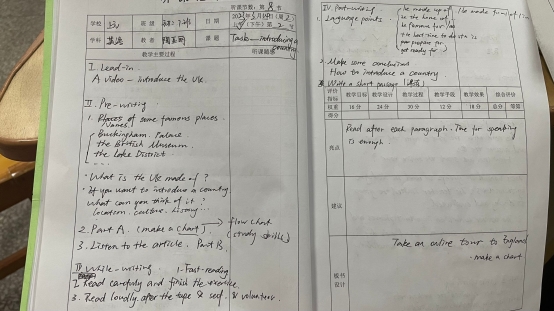 听课节数: 第 8 节
学校
班级
日期
学科 英语
教者
课题 Task—introducing a country
教学主要过程
听课随感
I. Lead-in
A video - introduce the UK.
II. Pre-writing
1. Places of some famous places.
names
Buckingham Palace
the British Museum
the Lake District
...
· What is the UK made of ?
· If you want to introduce a country
what can you think of it ?
location, culture, history ...
2. Part A. (make a chart) → flow chart
(study skills)
3. Listen to the article. Part B.
III While-writing. 1. Fast-reading
2. Read carefully and finish the exercise.
3. Read loudly after the tape & self. & volunteer.
IV. Post-writing
1. Language points
be made up of
be the home of
be famous for
the best time to do sth is
prepare for
get ready for
2. Make some conclusions
How to introduce a country
3. Write a short passage
评价指标 教学目标 教学设计 教学过程 教学手段 教学效果 综合评价
权重 16分 24分 30分 12分 18分 总分 等第
得分
亮点
Read after each paragraph. Time for speaking
is enough.
建议
板书设计
Take an online tour to England
· make a chart